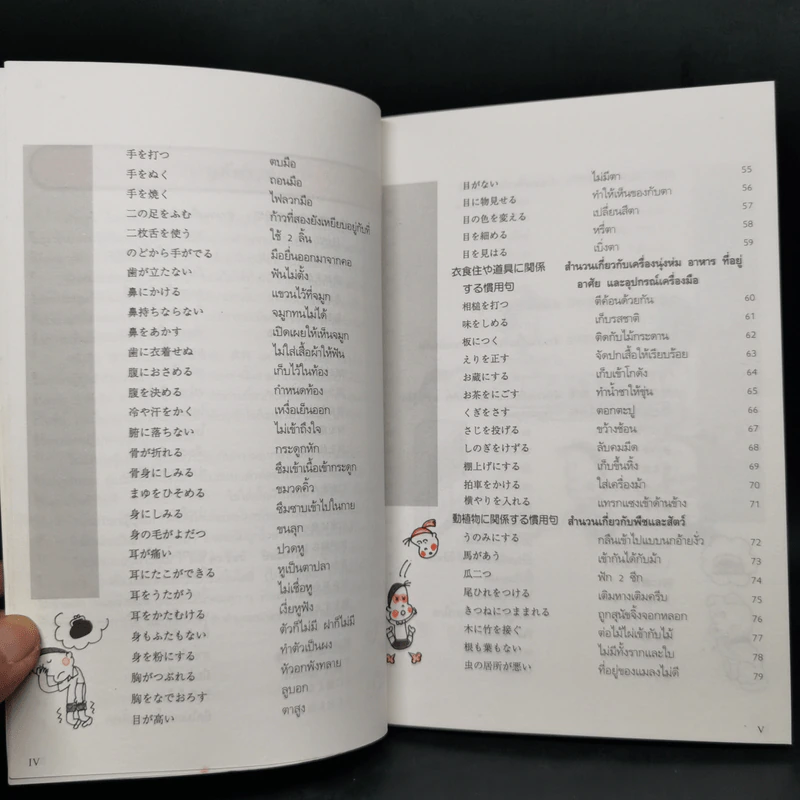 手を打つ ตบมือ
手をぬく ถอนมือ
手を焼く ไฟลวกมือ
二の足をふむ ก้าวที่สองยังเหยียบอยู่กับที่
二枚舌を使う ใช้ 2 ลิ้น
のどから手がでる มือยื่นออกมาจากคอ
歯が立たない ฟันไม่ตั้ง
鼻にかける แขวนไว้ที่จมูก
鼻持ちならない จมูกทนไม่ได้
鼻をあかす เปิดเผยให้เห็นจมูก
歯に衣着せぬ ไม่ใส่เสื้อผ้าให้ฟัน
腹におさめる เก็บไว้ในท้อง
腹を決める กำหนดท้อง
冷や汗をかく เหงื่อเย็นออก
腑に落ちない ไม่เข้าถึงใจ
骨が折れる กระดูกหัก
骨身にしみる ซึมเข้าเนื้อเข้ากระดูก
まゆをひそめる ขมวดคิ้ว
身にしみる ซึมซาบเข้าไปในกาย
身の毛がよだつ ขนลุก
耳が痛い ปวดหู
耳にたこができる หูเป็นตาปลา
耳をうたがう ไม่เชื่อหู
耳をかたむける เงี่ยหูฟัง
身もふたもない ตัวก็ไม่มี ฝาก็ไม่มี
身を粉にする ทำตัวเป็นผง
胸がつぶれる หัวอกพังทลาย
胸をなでおろす ลูบอก
目が高い ตาสูง
IV
目がない ไม่มีตา 55
目に物見せる ทำให้เห็นของกับตา 56
目の色を変える เปลี่ยนสีตา 57
目を細める หรี่ตา 58
目を見はる เบิ่งตา 59
衣食住や道具に関係 สำนวนเกี่ยวกับเครื่องนุ่งห่ม อาหาร ที่อยู่
する慣用句 อาศัย และอุปกรณ์เครื่องมือ
相槌を打つ ตีค้อนด้วยกัน 60
味をしめる เก็บรสชาติ 61
板につく ติดกับไม้กระดาน 62
えりを正す จัดปกเสื้อให้เรียบร้อย 63
お蔵にする เก็บเข้าโกดัง 64
お茶をにごす ทำน้ำชาให้ขุ่น 65
くぎをさす ตอกตะปู 66
さじを投げる ขว้างช้อน 67
しのぎをけずる ลับคมมีด 68
棚上げにする เก็บขึ้นหิ้ง 69
拍車をかける ใส่เครื่องม้า 70
横やりを入れる แทรกแซงเข้าด้านข้าง 71
動植物に関係する慣用句 สำนวนเกี่ยวกับพืชและสัตว์
うのみにする กลืนเข้าไปแบบนกอ้ายงั่ว 72
馬があう เข้ากันได้กับม้า 73
瓜二つ ฟัก 2 ซีก 74
尾ひれをつける เติมหางเติมครีบ 75
きつねにつままれる ถูกสุนัขจิ้งจอกหลอก 76
木に竹を接ぐ ต่อไม้ไผ่เข้ากับไม้ 77
根も葉もない ไม่มีทั้งรากและใบ 78
虫の居所が悪い ที่อยู่ของแมลงไม่ดี 79
V